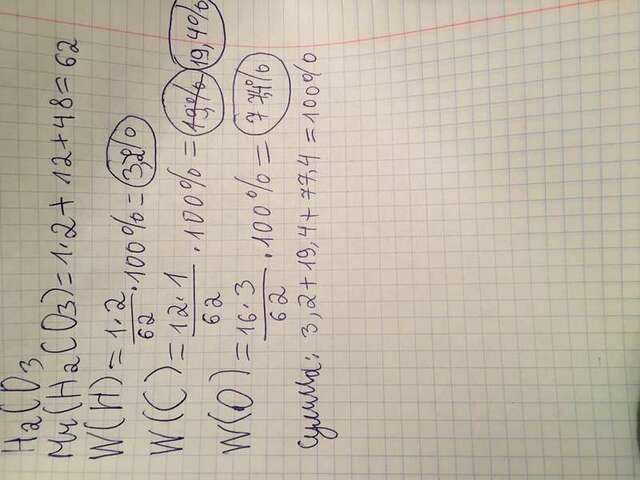 H₂CO₃
Mr(H₂CO₃)=1·2+12+48=62
W(H)=1·2/62·100%=3,2%
W(C)=12·1/62·100%=19,% 19,4%
W(O)=16·3/62·100%=77,4%
сумма: 3,2+19,4+77,4=100%